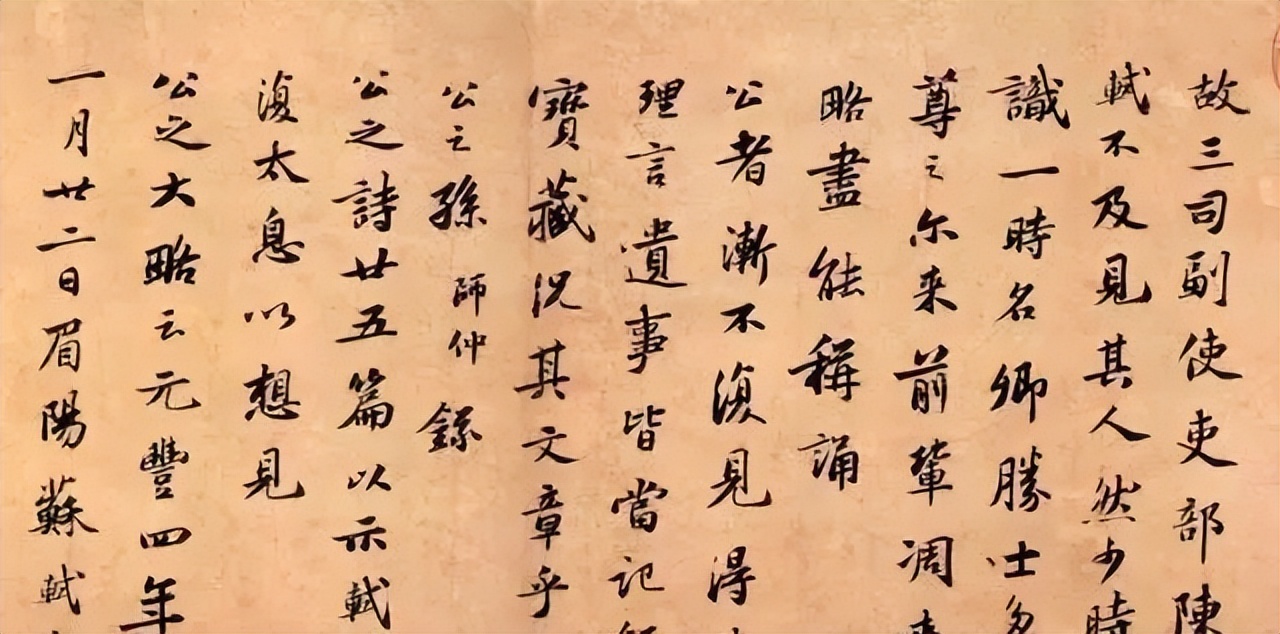 故三司副使吏部陳
軾不及見其人然少時
識一時名卿勝士多
尊之尓來前輩凋
略盡能稱誦
公者漸不復見得
理言遺事皆當記
寶藏況其文章乎
公之孫師仲錄
公之詩廿五篇以示軾
復太息以想見
公之大略云元豐四年
一月廿二日眉陽蘇軾